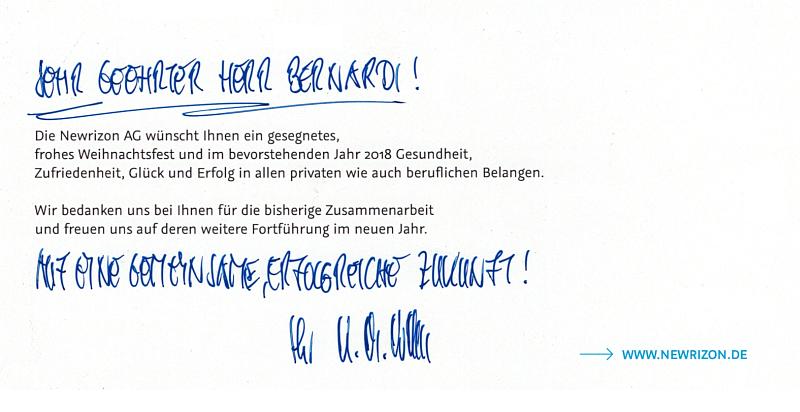 SEHR GEEHRTER HERR BERNARDI!
Die Newrizon AG wünscht Ihnen ein gesegnetes,
frohes Weihnachtsfest und im bevorstehenden Jahr 2018 Gesundheit,
Zufriedenheit, Glück und Erfolg in allen privaten wie auch beruflichen Belangen.
Wir bedanken uns bei Ihnen für die bisherige Zusammenarbeit
und freuen uns auf deren weitere Fortführung im neuen Jahr.
AUF EINE GEMEINSAME, ERFOLGREICHE ZUKUNFT!
Ihr
WWW.NEWRIZON.DE